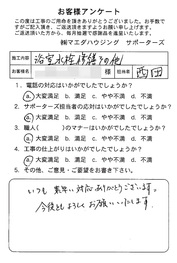 お客様アンケート
この度は工事のご用命を頂きありがとうございました。お手数で
すがご記入頂き、ご返送頂きます様お願い申し上げます。
ご返送頂いた方から、毎月抽選で感謝品を進呈いたします。
㈱マエダハウジング サポーターズ
施工内容 浴室水栓修繕その他
お客様名 様 担当者 西田
1. 電話の対応はいかがでしたでしょうか？
a. 大変満足 b. 満足 c. やや不満 d. 不満
2. サポーターズ担当者の応対はいかがでしたでしょうか？
a. 大変満足 b. 満足 c. やや不満 d. 不満
3. 職人( )のマナーはいかがでしたでしょうか？
a. 大変満足 b. 満足 c. やや不満 d. 不満
4. 工事の仕上がりはいかがでしたでしょうか？
a. 大変満足 b. 満足 c. やや不満 d. 不満
5. その他、ご意見・ご要望をお書き下さい。
いつも素早い対応ありがとうございます。
今後ともよろしくお願いいたします。